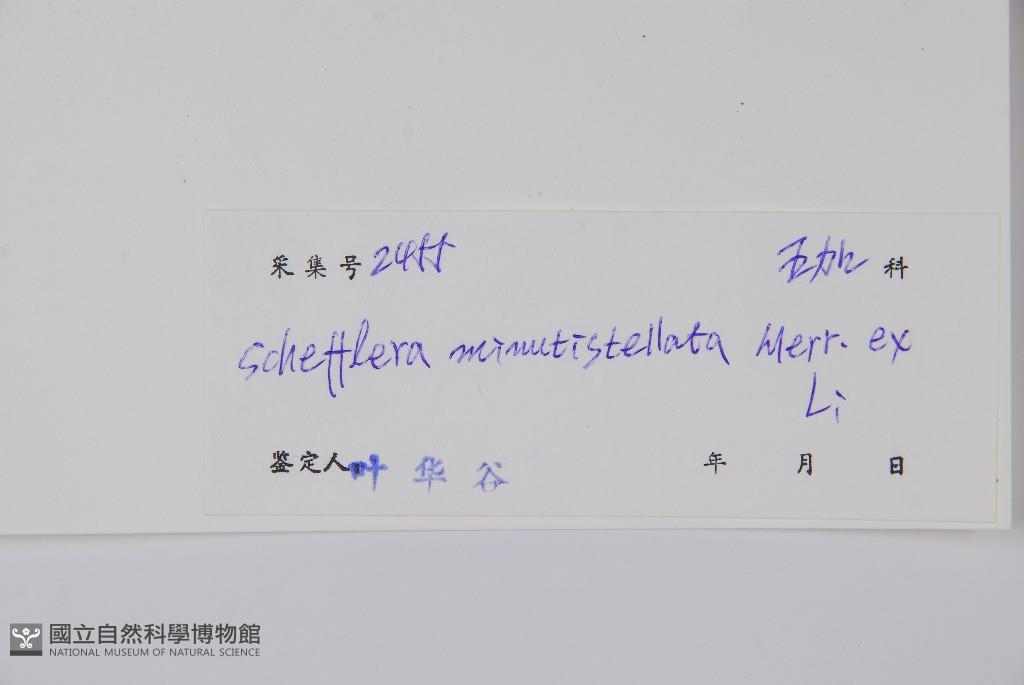 采集号 2455 五加 科
Scheffler​a minutistellata Merr. ex
Li
鉴定人 叶华谷 年 月 日
國立自然科學博物館
NATIONAL MUSEUM OF NATURAL SCIENCE